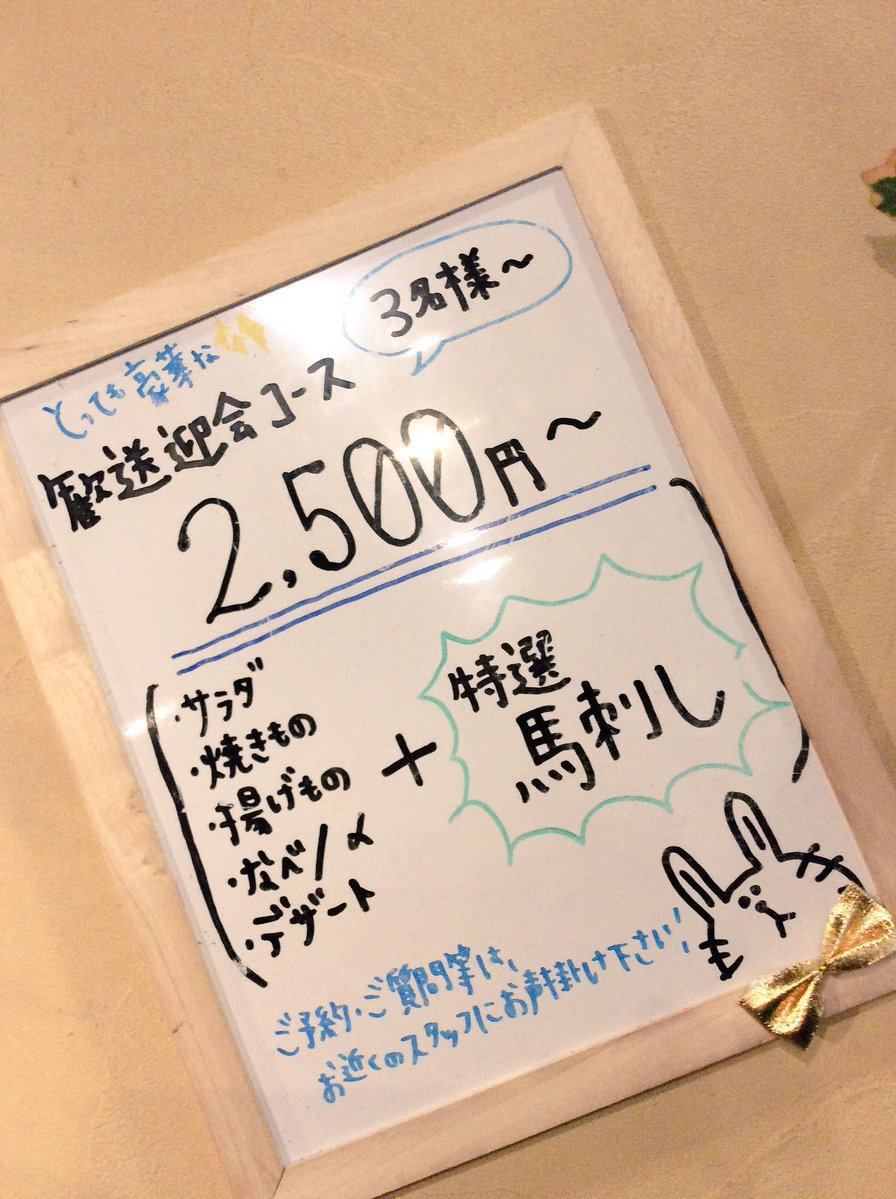 3名様～
とっても豪華な
歓送迎会コース
2,500円～
・サラダ
・焼きもの
・揚げもの
・なべ/〆
・デザート
+
特選
馬刺し
ご予約・ご質問等は、
お近くのスタッフにお声掛け下さい!